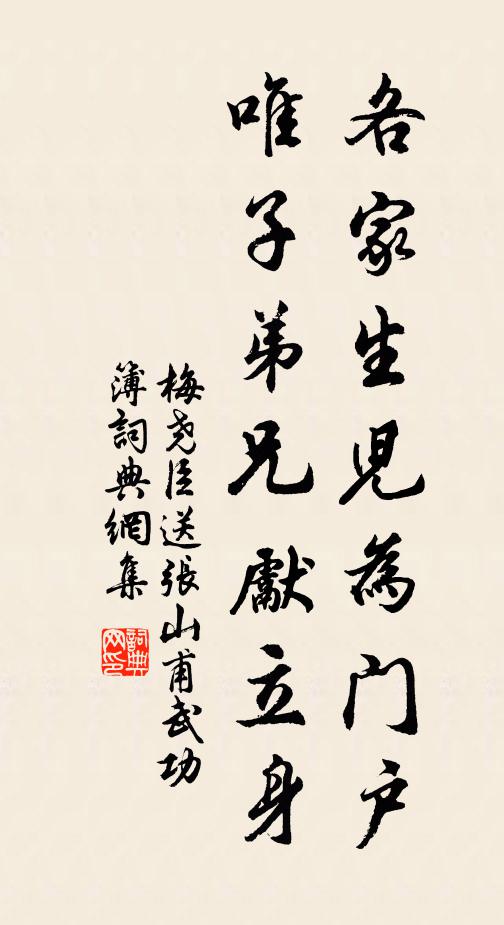 各家生児為门户
唯子弟兄獻立身
梅尧臣送張山甫武功
簿詞典網集
詞典网印